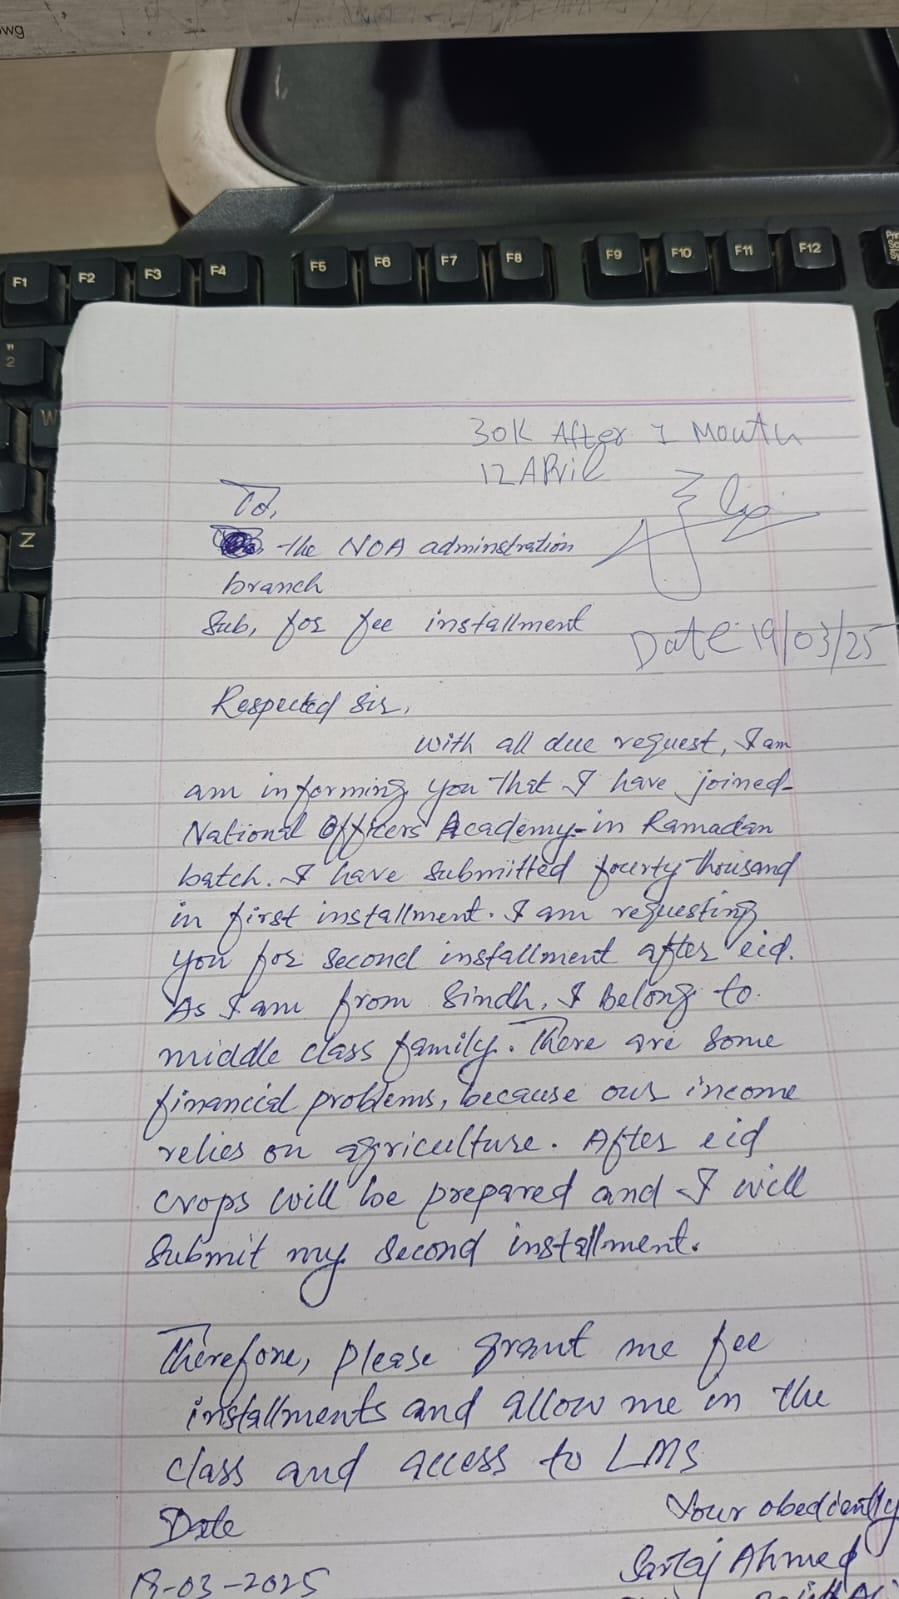 wg
F1 F2 F3 F4 F5 F6 F7 F8 F9 F10 F11 F12
"
2
W
Z
30K After 1 Month
12 APril
To,
the NOA adminstration
branch
Sub, for fee installment
Date 19/03/25
Respected sir,
with all due request, I am
am informing you that I have joined
National Officers Academy in Ramadan
batch. I have submitted fourty thousand
in first installment. I am requesting
you for second installment after eid.
As I am from Sindh, I belong to
middle class family. There are some
financial problems, because our income
relies on agriculture. After eid
crops will be prepared and I will
submit my second installment.
Therefore, please grant me fee
installments and allow me in the
class and access to LMS
Date
Your obediently
Sartaj Ahmed
19-03-2025